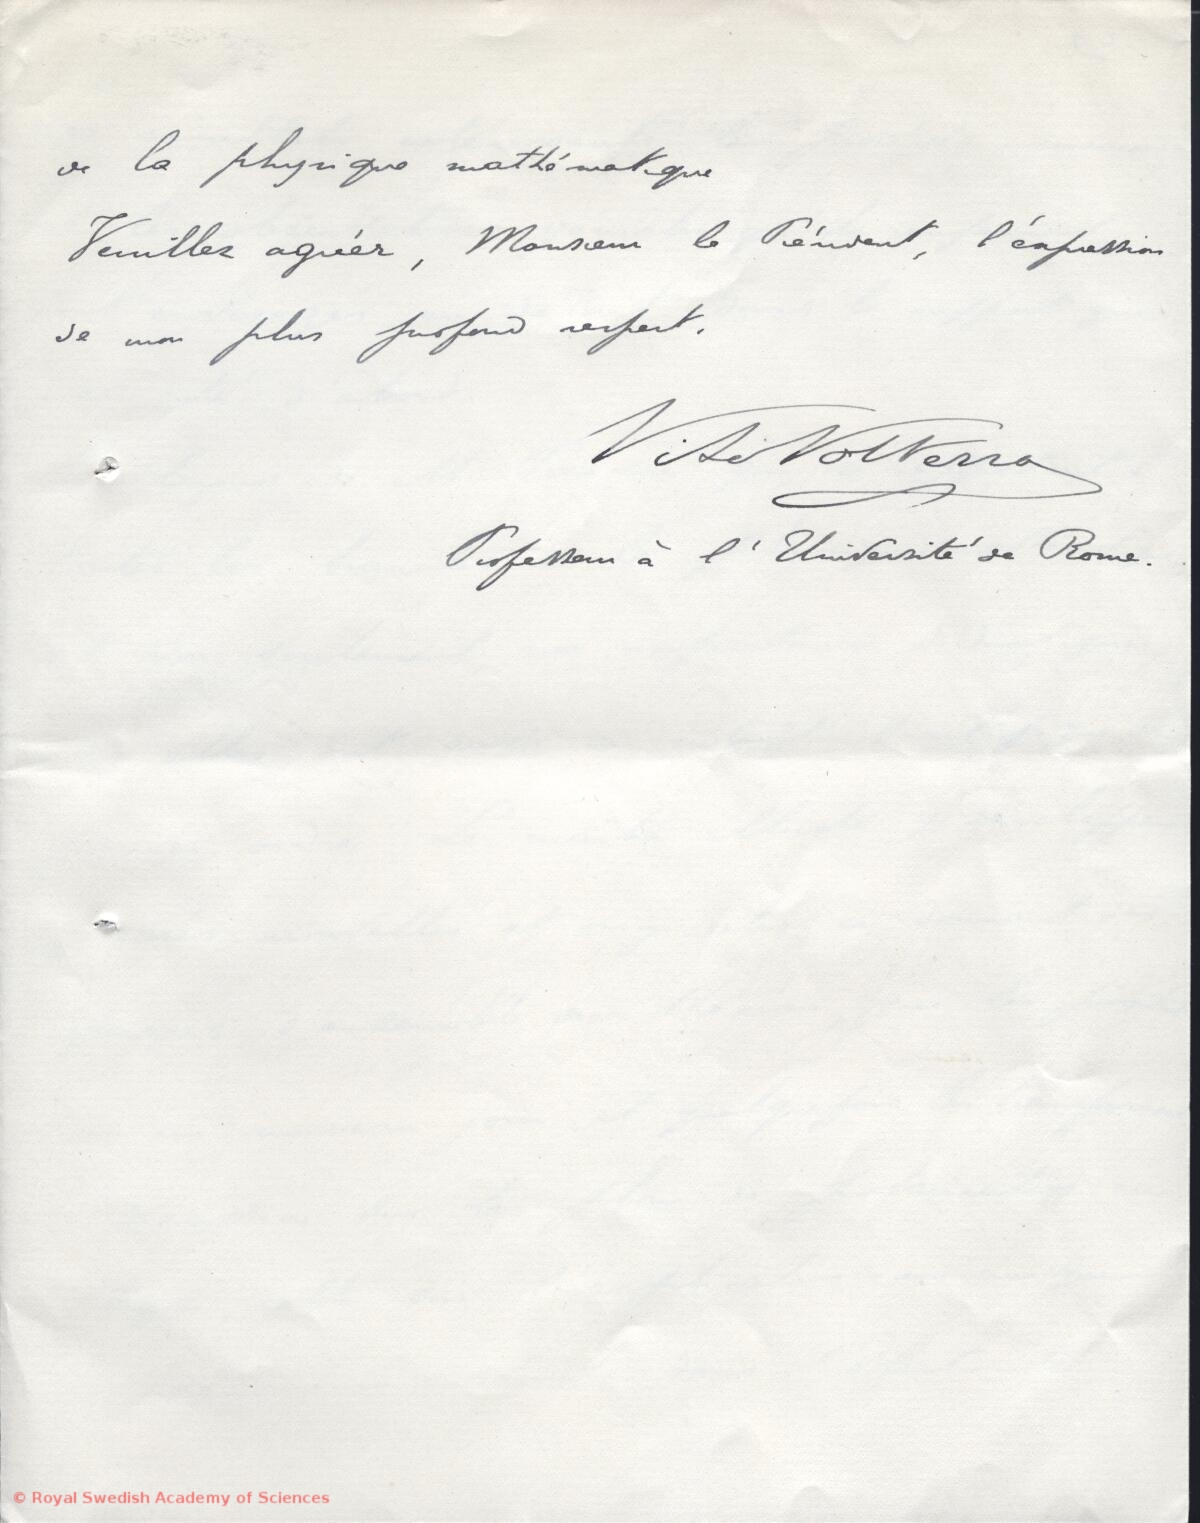 de la physique mathématique
Veuillez agréer, Monsieur le Président, l'expression
de mon plus profond respect.
Vito Volterra
Professeur à l'Université de Rome.
© Royal Swedish Academy of Sciences